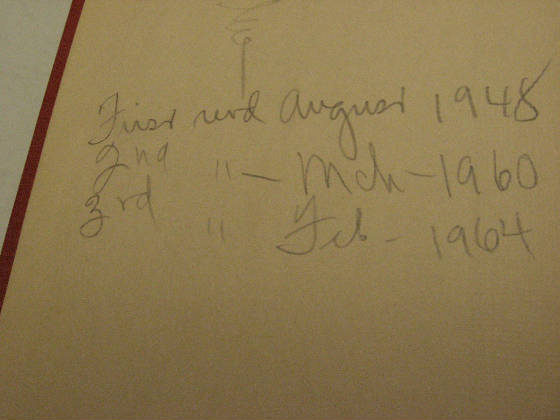 First read August 1948
2nd " - Mch - 1960
3rd " Feb - 1964